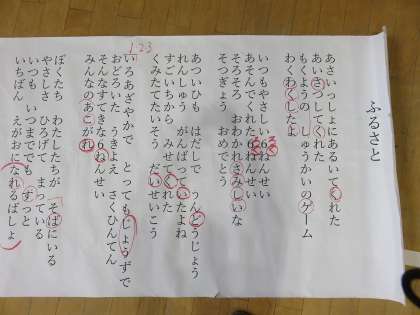 ふるさと
あさいっしょにあるいてくれた
あいさつしてくれた
もくようの しゅうかいのゲーム
わくわくしたよ
いつもやさしい6ねんせい
あそんでくれた6ねんせい
そろそろ おわかれさみしいな
そつぎょう おめでとう
あついひも はだしで うんどうじょう
れんしゅう がんばっていたよね
すごいちから みせてくれた
くみたてたいそう だいせいこう
いろあざやかで とってもじょうずで
おどろいた うきよえ さくひんてん
そんなすてきな6ねんせい
みんなのあこがれ
ぼくたち わたしたちが そばにいる
やさしさ ひろげて まっている
いつも いつまでも ずっと
いちばん えがおになれるばしょ
1 2 3